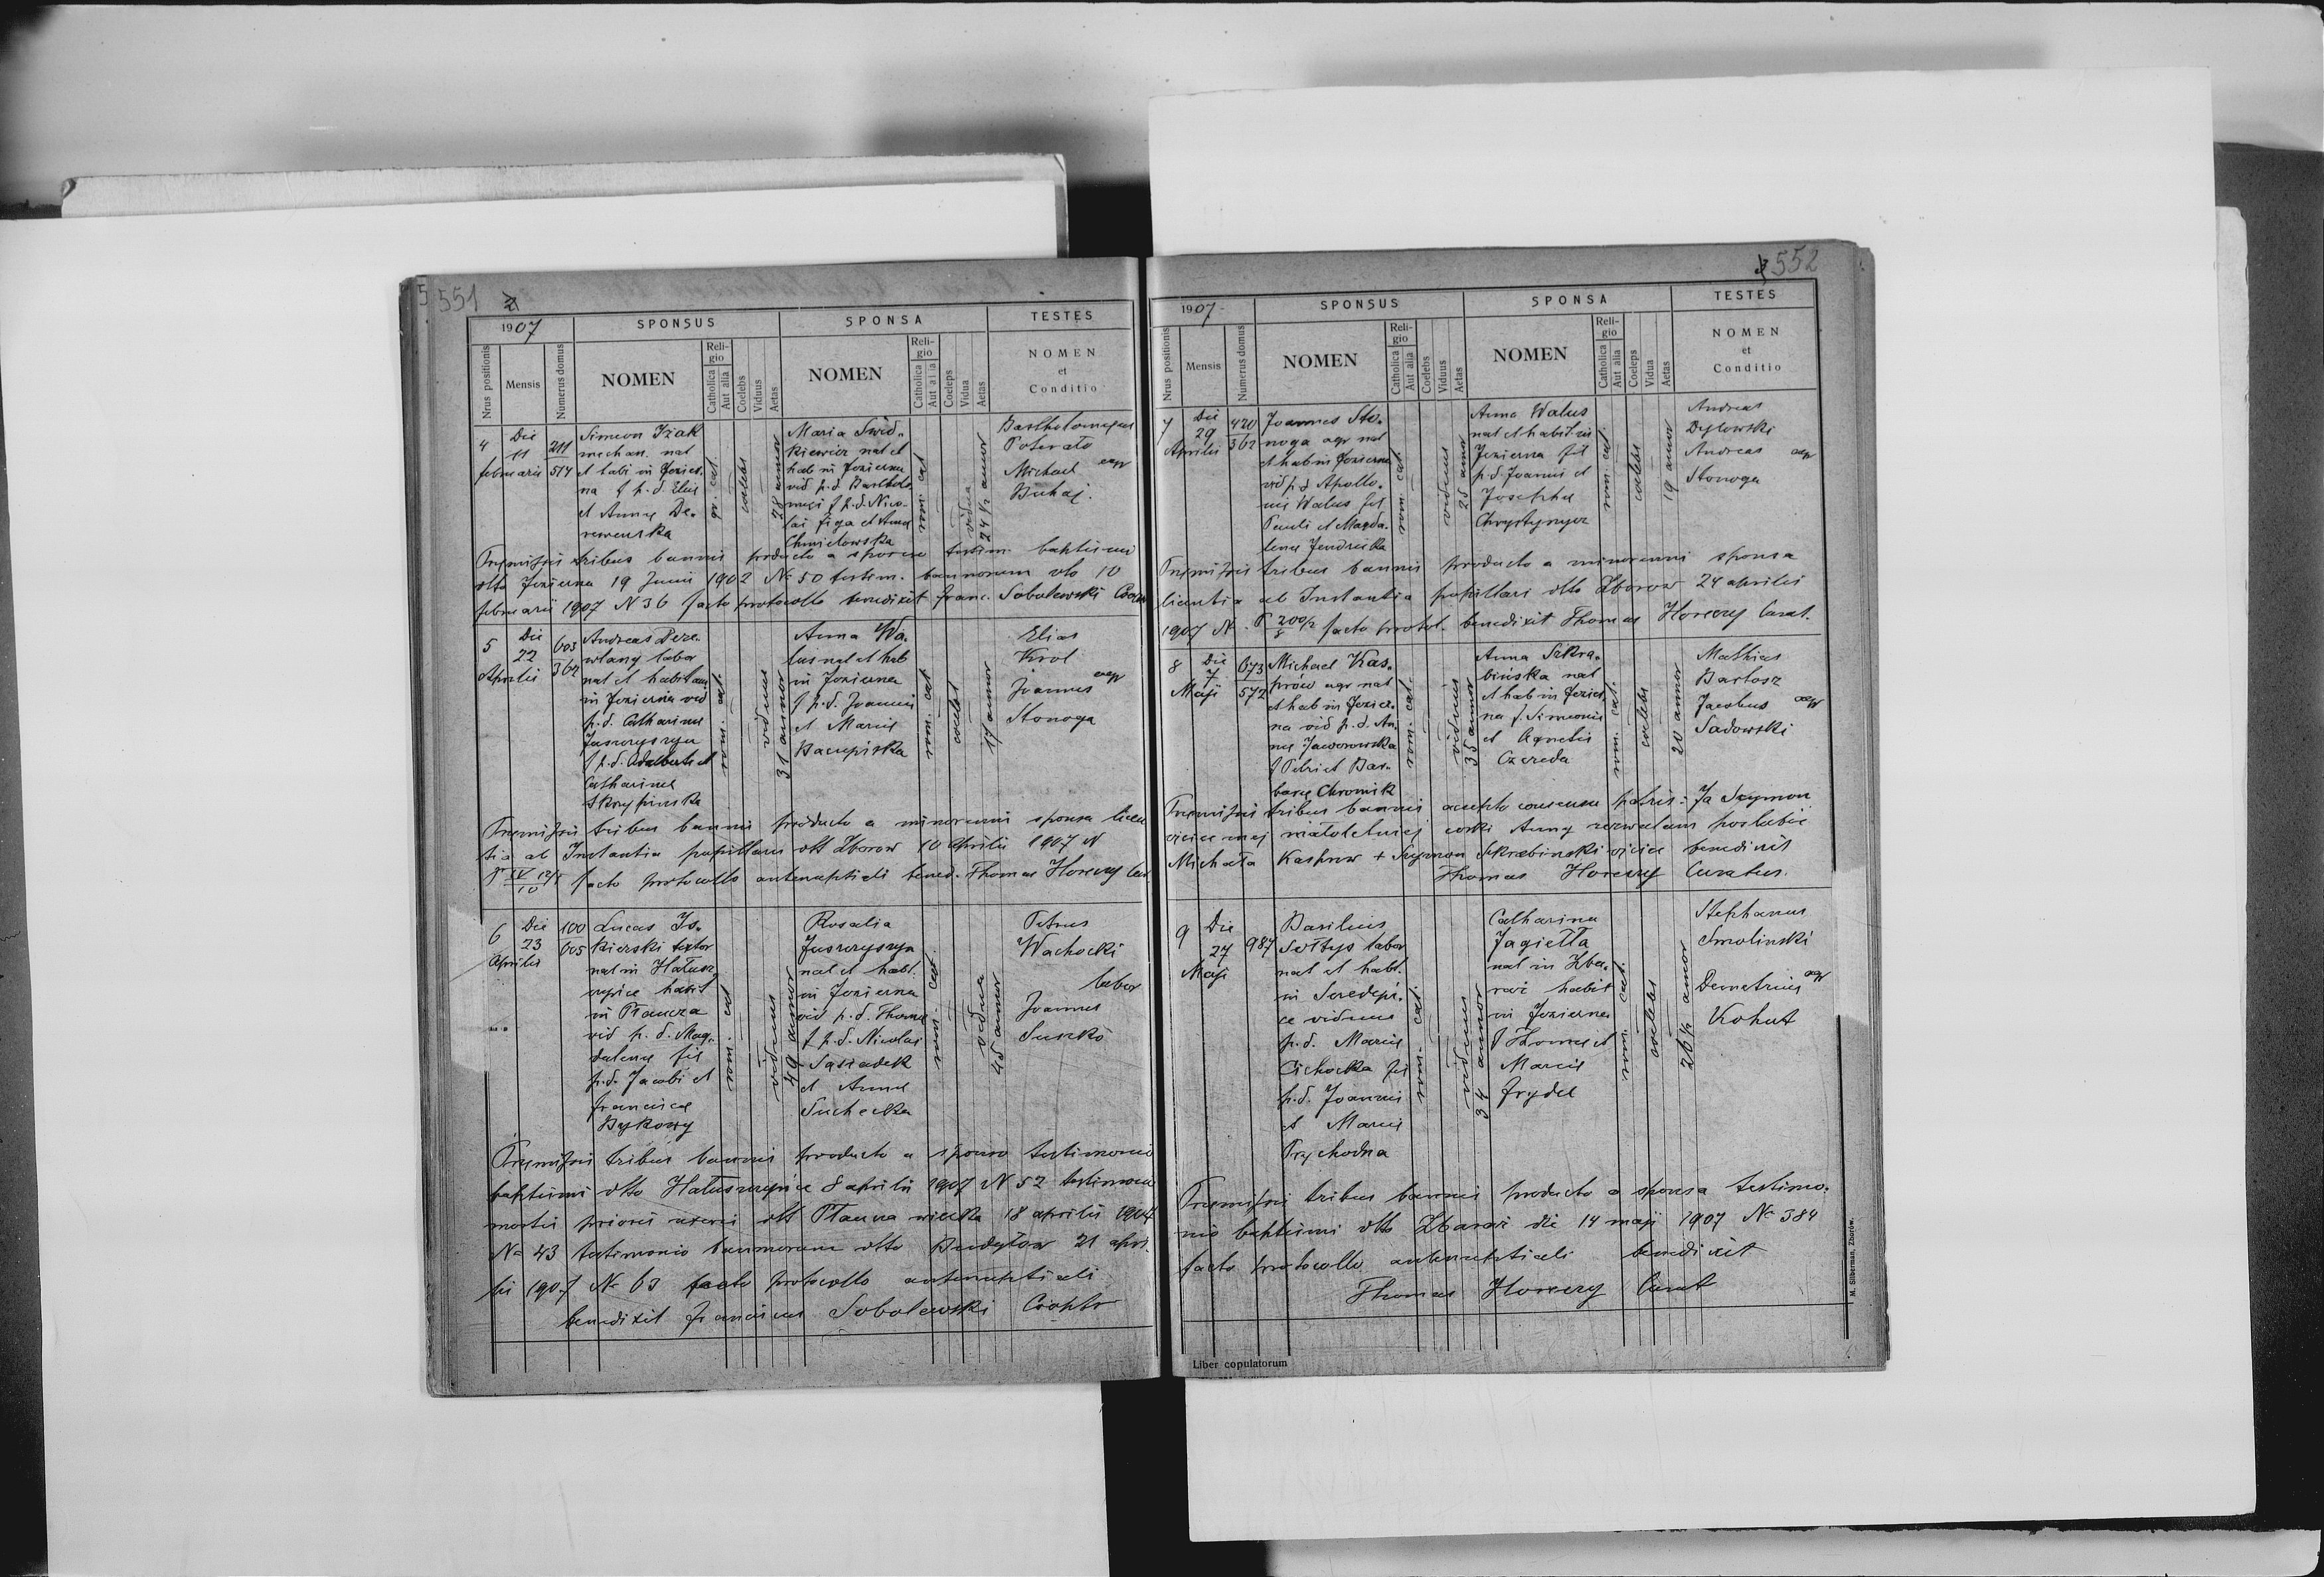 551
1907
SPONSUS
SPONSA
TESTES
Nrus positionis
Mensis
Numerus domus
NOMEN
Religio
Catholica
Aut alia
Coelebs
Viduus
Aetas
NOMEN
Religio
Catholica
Aut alia
Coeleps
Vidua
Aetas
NOMEN
et
Conditio
4
Die
11
februarii
211
514
Simeon Iżak
mechan. nat
et habi in Jezier.
na f p.d. Elie
et Annae De.
rewenska
gr. cat.
coelebs
28 annor
Maria Swid.
kiewicz nat et
hab in Jezierna
vid p.d. Bartholo
maei f p.d. Nico-
lai Figa et Annae
Chmielowska
rom. cat
vidua
24 1/2 annor
Bartholomaeus
Poterało
Michael agr
Buhaj.
Praemissis tribus bannis producto a sponso testim. baptismi
dtto Jezierna 19 Junii 1902 No 50 testim. bannorum dto 10
februarii 1907 N 36 facto protocollo benedixit Franc. Sobolewski Coop
5
Die
22
Aprilis
603
362
Andreas Pere.
wlany labo
nat et habitans
in Jezierna vid
p.d. Catharinae
Juszczyszyn
f p.d. Adalberti et
Catharinae
Skrypinska
rom. cat.
viduus
31 annor
Anna Wa.
lus nat et hab
in Jezierna
f p.d. Joannis
et Mariae
Bacupiska
rom. cat
coelebs
17 annor
Elias
Krol
Joannes agr
Stonoga
Praemissis tribus bannis producto a minorenni sponsa licen
tia ab Instantia pupillari dtt Zborow 10 Aprilis 1907 N
P IV 12/7
10 facto protocollo antenuptiali bened. Thomas Horeczy Cur
6
Die
23
Aprilis
100
605
Lucas Is.
kierski textor
nat in Hałusz
czyńce habit
in Płaucza
vid p.d. Mag.
dalenae fil
p.d. Jacobi et
Franciscae
Bykowy
rom. cat
viduus
49 annor
Rosalia
Juszczyszyn
nat et habt.
in Jezierna
vid p.d. Thomae
f p.d. Nicolai
Sasiadek
et Annae
Suchecka
rom. cat.
vidua
45 annor
Petrus
Wachocki
labor
Joannes
Suszko
Praemissis tribus bannis producto a sponso testimonio
baptismi dtto Hałuszczyńce 8 aprilis 1907 N 52 testimonio
mortis prioris uxoris dtt Płaucza wielka 18 aprilis 1907
No 43 testimonio bannorum dtto Budyłow 21 apri.
lis 1907 No 63 facto protocollo antenuptiali
benedixit Franciscus Sobolewski Coopto
552
1907
SPONSUS
SPONSA
TESTES
Nrus positionis
Mensis
Numerus domus
NOMEN
Religio
Catholica
Aut alia
Coelebs
Viduus
Aetas
NOMEN
Religio
Catholica
Aut alia
Coeleps
Vidua
Aetas
NOMEN
et
Conditio
7
Die
29
Aprilis
420
362
Joannes Sto.
noga agr nat
et hab in Jezierna
vid p.d Apollo.
niae Walus fil
Pauli et Magda.
lenae Jendruska
rom. cat.
viduus
25 annor
Anna Walus
nat et habit in
Jezierna fil
p.d. Joannis et
Josephae
Chrystynycz
rom. cat.
coelebs
19 annor
Andreas
Dyłowski
Andreas agr
Stonoga
Praemissis tribus bannis producto a minorenni sponsa
licentia ab Instantia pupillari dtto Zborow 24 aprilis
1907 N. P 200/2
8 facto protol. benedixit Thomas Horeczy Curat.
8
Die
7
Maji
673
572
Michael Kas.
prów agr nat
et hab in Jezier.
na vid p.d. An
nae Jaworowska
f Petri et Bar.
barae Chromik
rom. cat.
viduus
35 annor
Anna Szkra.
bińska nat
et hab in Jezier.
na f. Simeonis
et Agnetis
Czereda
rom. cat.
coelebs
20 annor
Mathias
Bartosz
Jacobus agr
Sadowski
Praemissis tribus bannis accepto consensu patris: Ja Szymon
ojciec mej małoletniej córki Anny zezwalam poslubić
Michała Kasprow + Szymon Skrabinski ojciec benedixit
Thomas Horeczy Curatus.
9
Die
27
Maji
987
Basilius
Sołtys labor
nat et habt.
in Seredyń.
ce viduus
p.d. Mariae
Cichocka fil
p.d. Joannis
et Mariae
Prychodna
rom. cat.
viduus
34 annor
Catharina
Jagiełła
nat in Zba.
raż habit
in Jezierna
f Thomae et
Mariae
Frydel
rom. cat.
coelebs
26 1/2 annor
Stephanus
Smolinski
Demetrius agr
Kohut
Praemissis tribus bannis producto a sponsa testimo.
nio baptismi dtto Zbaraż die 14 maji 1907 No 384
facto protocollo antenuptiali benedixit
Thomas Horeczy Curat
Liber copulatorum
M. Silberman, Zborów.